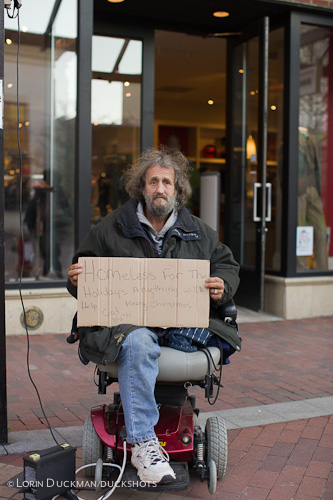 Homeless For The
Holidays Anything will
Help Merry Christmas
© Lorin Duckman/duckshots